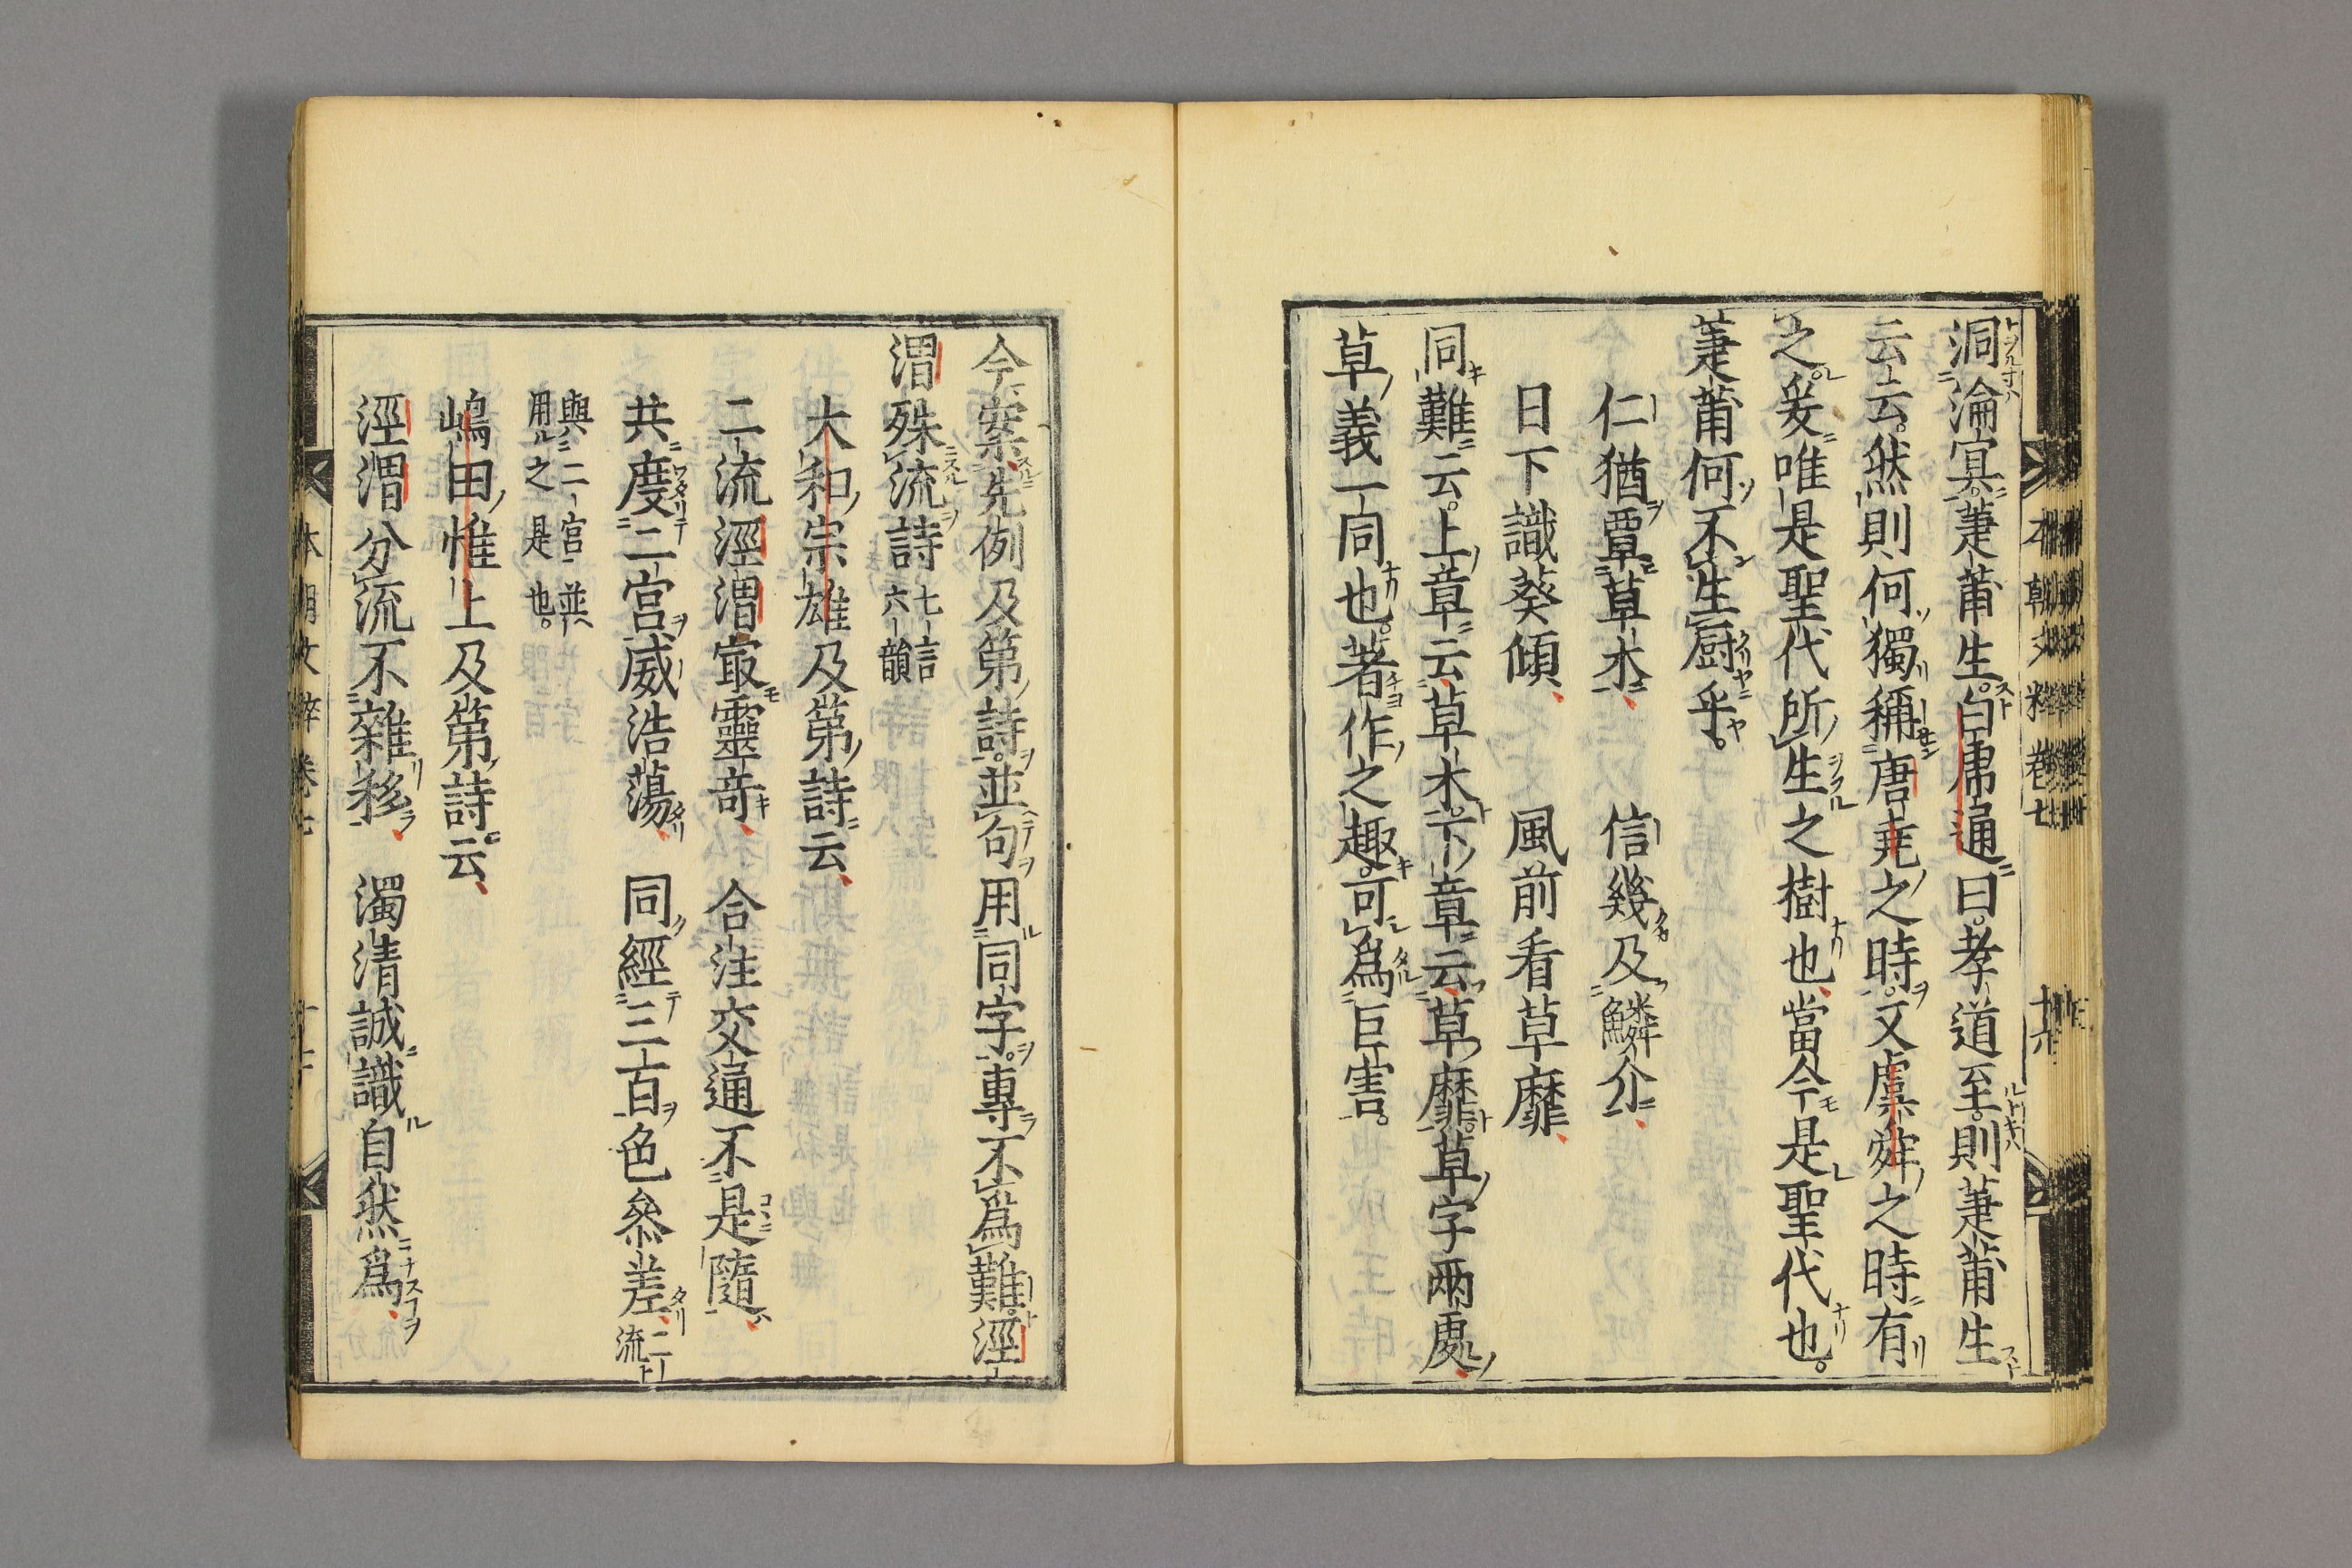 洞淪冥萐莆生白虎通曰孝道至則萐莆生
云云然則何獨稱唐堯之時又虞舜之時有
之爰唯是聖代所生之樹也當今是聖代也
萐莆何不生厨乎
仁猶覃草木　信幾及鱗介
日下識葵傾　風前看草靡
同難云上章云草木下章云草靡草字兩處
草義一同也著作之趣可爲巨害
今案先例及第詩並句用同字專不爲難涇
渭殊流詩 七言 六韻
大和宗雄及第詩云
二流涇渭寂靈奇　合注交通不是隨
共度二宮威浩蕩　同經三百色參差 二流
與二宮並 用之是也
嶋田惟上及第詩云
涇渭分流不雜移　濁清誠識自然爲
本朝文粹卷七